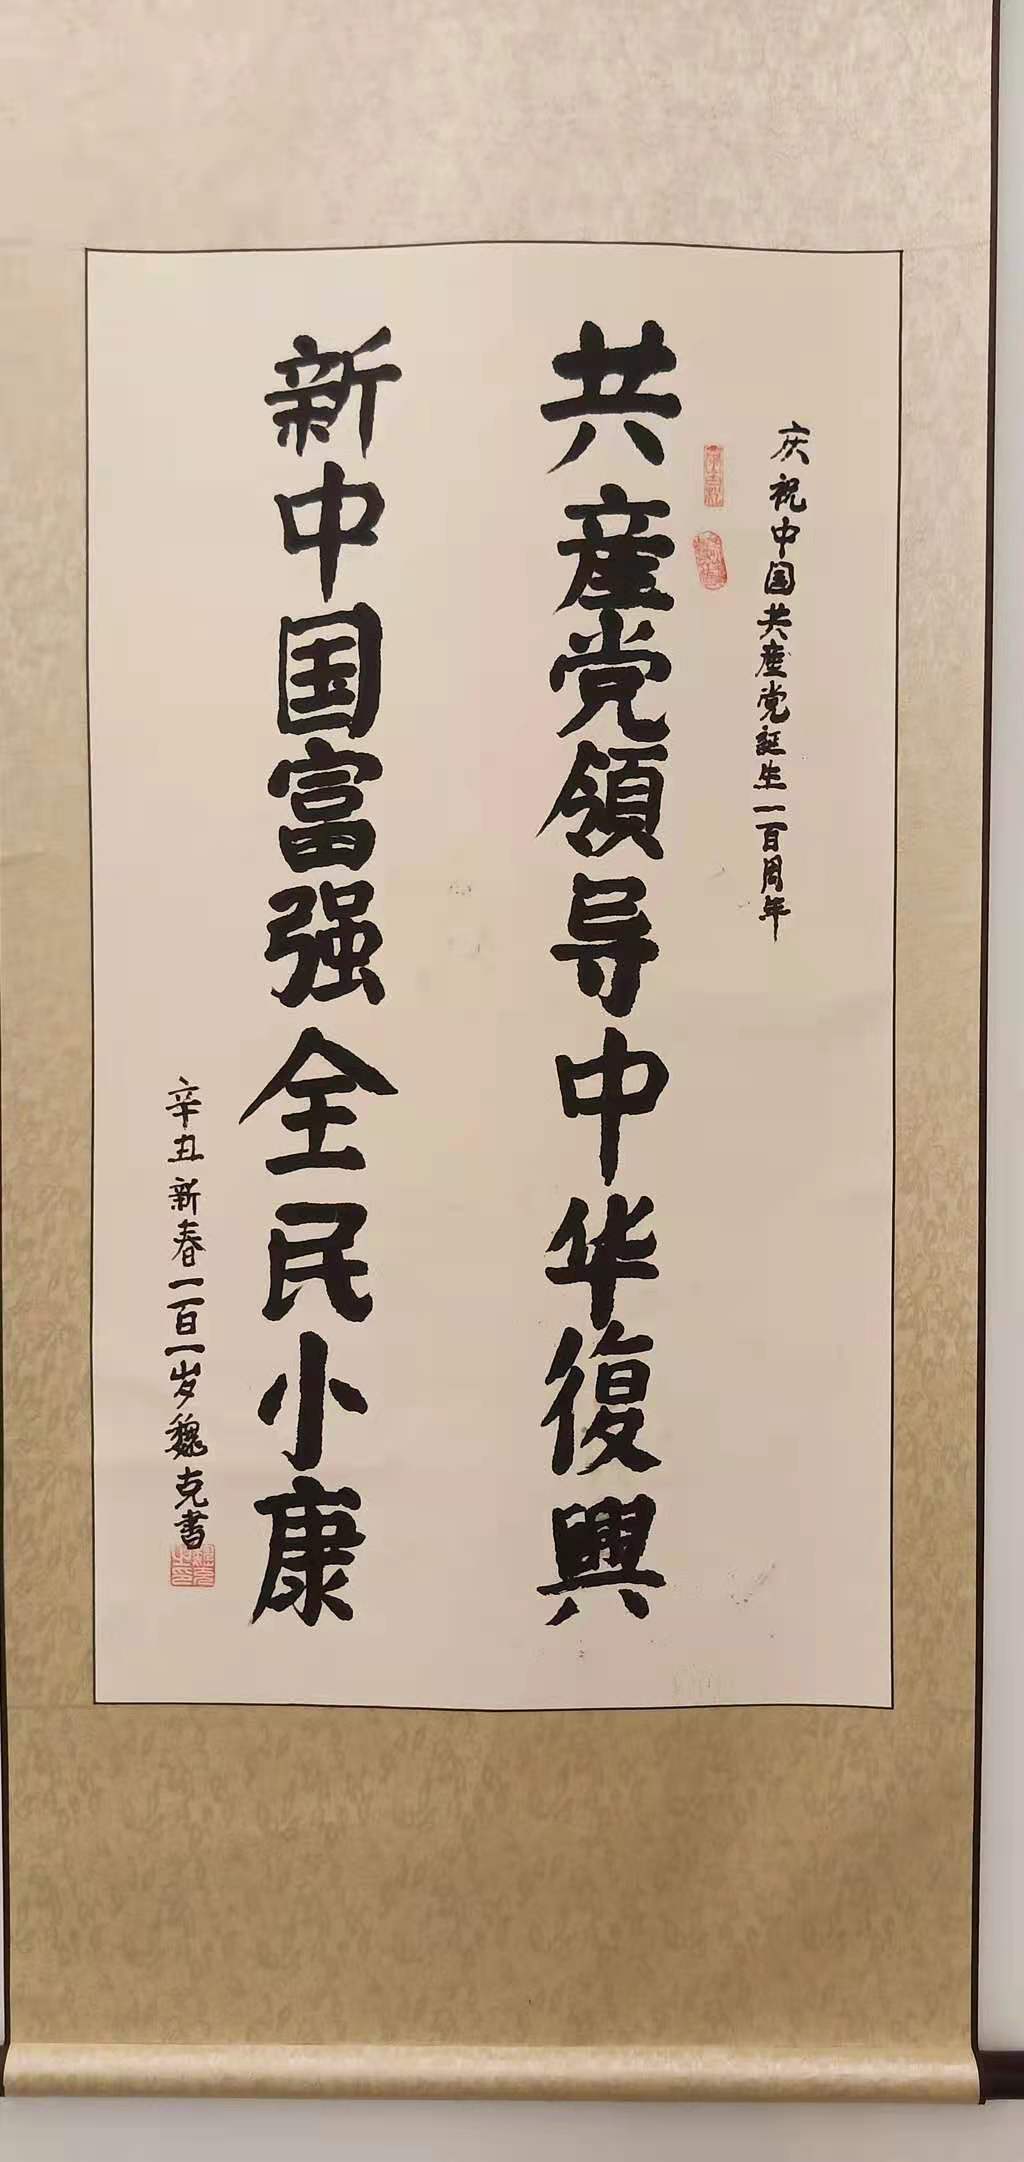 庆祝中国共産党誕生一百周年
共産党領导中华復興
新中国富强全民小康
辛丑新春一百一岁魏克書